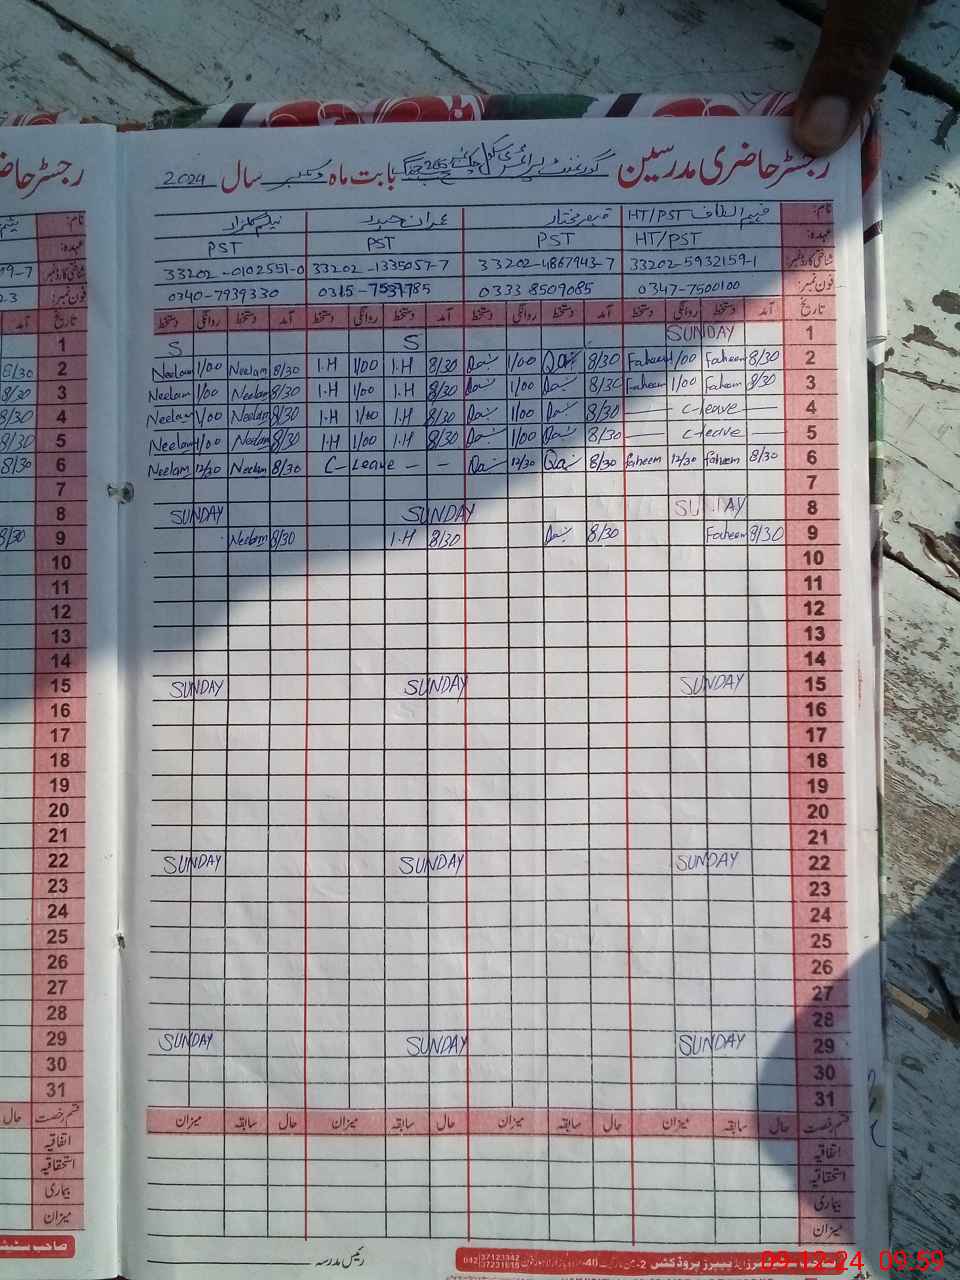 رجسٹر حاضری مدرسین گورنمنٹ پرائمری سکول بابت ماہ دسمبر سال 2024
نام: فہیم الطاف HT/PST قیصر مختار عمران حیدر نیلم گلزار
عہدہ: HT/PST PST PST PST
شناختی کارڈ نمبر: 33202-5932159-1 33202-4867943-7 33202-1335057-7 33202-0102551-0
فون نمبر: 0347-7500100 0333 8509085 0315-7531785 0340-7939330
تاریخ آمد دستخط روانگی دستخط آمد دستخط روانگی دستخط آمد دستخط روانگی دستخط آمد دستخط روانگی دستخط
1 SUNDAY S S
2 8/30 Faheem 1/00 Faheem 8/30 Qai 1/00 Qai 8/30 I.H 1/00 I.H 8/30 Neelam 1/00 Neelam
3 8/30 Faheem 1/00 Faheem 8/30 Qai 1/00 Qai 8/30 I.H 1/00 I.H 8/30 Neelam 1/00 Neelam
4 — C-leave — 8/30 Qai 1/00 Qai 8/30 I.H 1/00 I.H 8/30 Neelam 1/00 Neelam
5 — C-leave — 8/30 Qai 1/00 Qai 8/30 I.H 1/00 I.H 8/30 Neelam 1/00 Neelam
6 8/30 faheem 12/30 faheem 8/30 Qai 12/30 Qai C-Leave — — 8/30 Neelam 12/30 Neelam
7
8 SUNDAY SUNDAY SUNDAY
9 8/30 Faheem 8/30 Qai 8/30 I.H 8/30 Neelam
10
11
12
13
14
15 SUNDAY SUNDAY SUNDAY
16
17
18
19
20
21
22 SUNDAY SUNDAY SUNDAY
23
24
25
26
27
28
29 SUNDAY SUNDAY SUNDAY
30
31
قسم رخصت حال سابقہ میزان حال سابقہ میزان حال سابقہ میزان حال سابقہ میزان
اتفاقیہ
استحقاقیہ
بیماری
میزان
رئیس مدرسہ
042 37123342 37231616
09-12-24 09:59